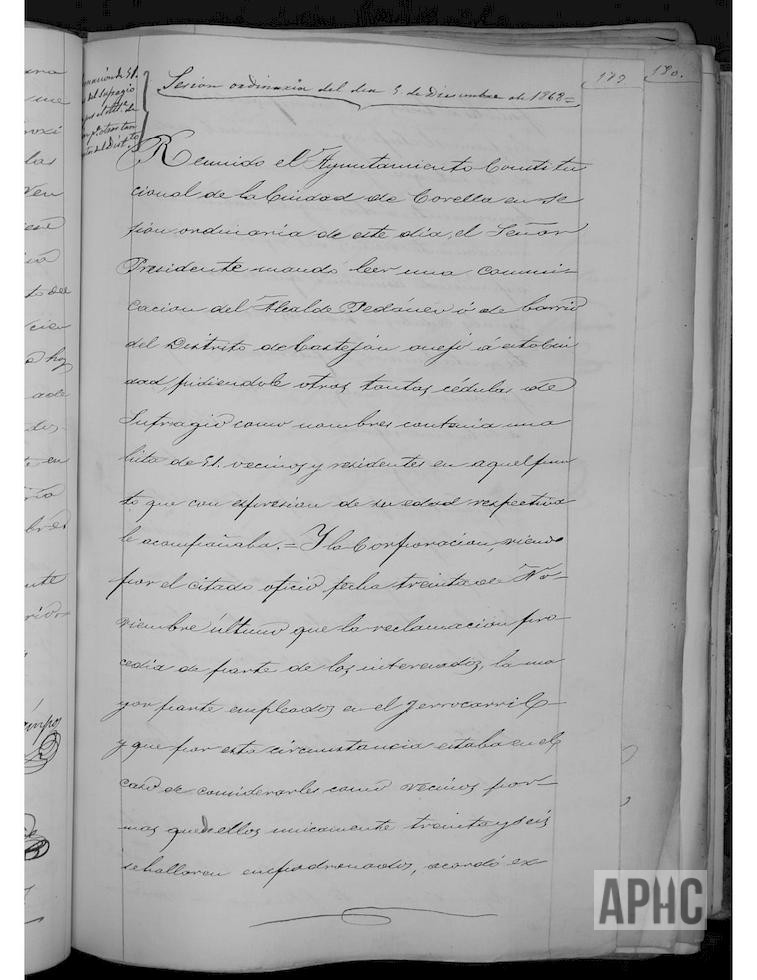 179 180.
Sesion ordinaria del dia 5 de Diciembre de 1868=
de 51.
del sufragio
otras tan
del Distto
Reunido el Ayuntamiento Constitu
cional de la Ciudad de Corella en se
sion ordinaria de este dia, el Señor
Presidente mandó leer una comuni-
cacion del Alcalde Pedáneo ó de barrio
del Distrito de Castejón anejo á esta Ciu
dad, pidiendole otras tantas cédulas de
Sufragio como nombres contenia una
lista de 51. vecinos y residentes en aquel pun
to que con espresion de su edad respectiva
le acompañaba.= Y la Corporacion, viendo
por el citado oficio fecha treinta de No-
viembre último que la reclamacion pro
cedia de parte de los interesados, la ma
yor parte empleados en el Ferrocarril
y que por esta circunstancia estaba en el
caso de considerarles como vecinos por
mas que de ellos unicamente treinta y seis
se hallaren empadronados, acordó ex-
APHC